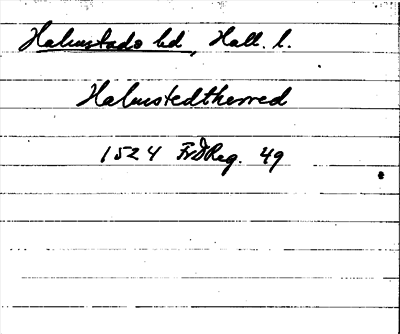 Halmstads hd, Hall. l.
Halmstedtherred
1524 FrdReg. 49